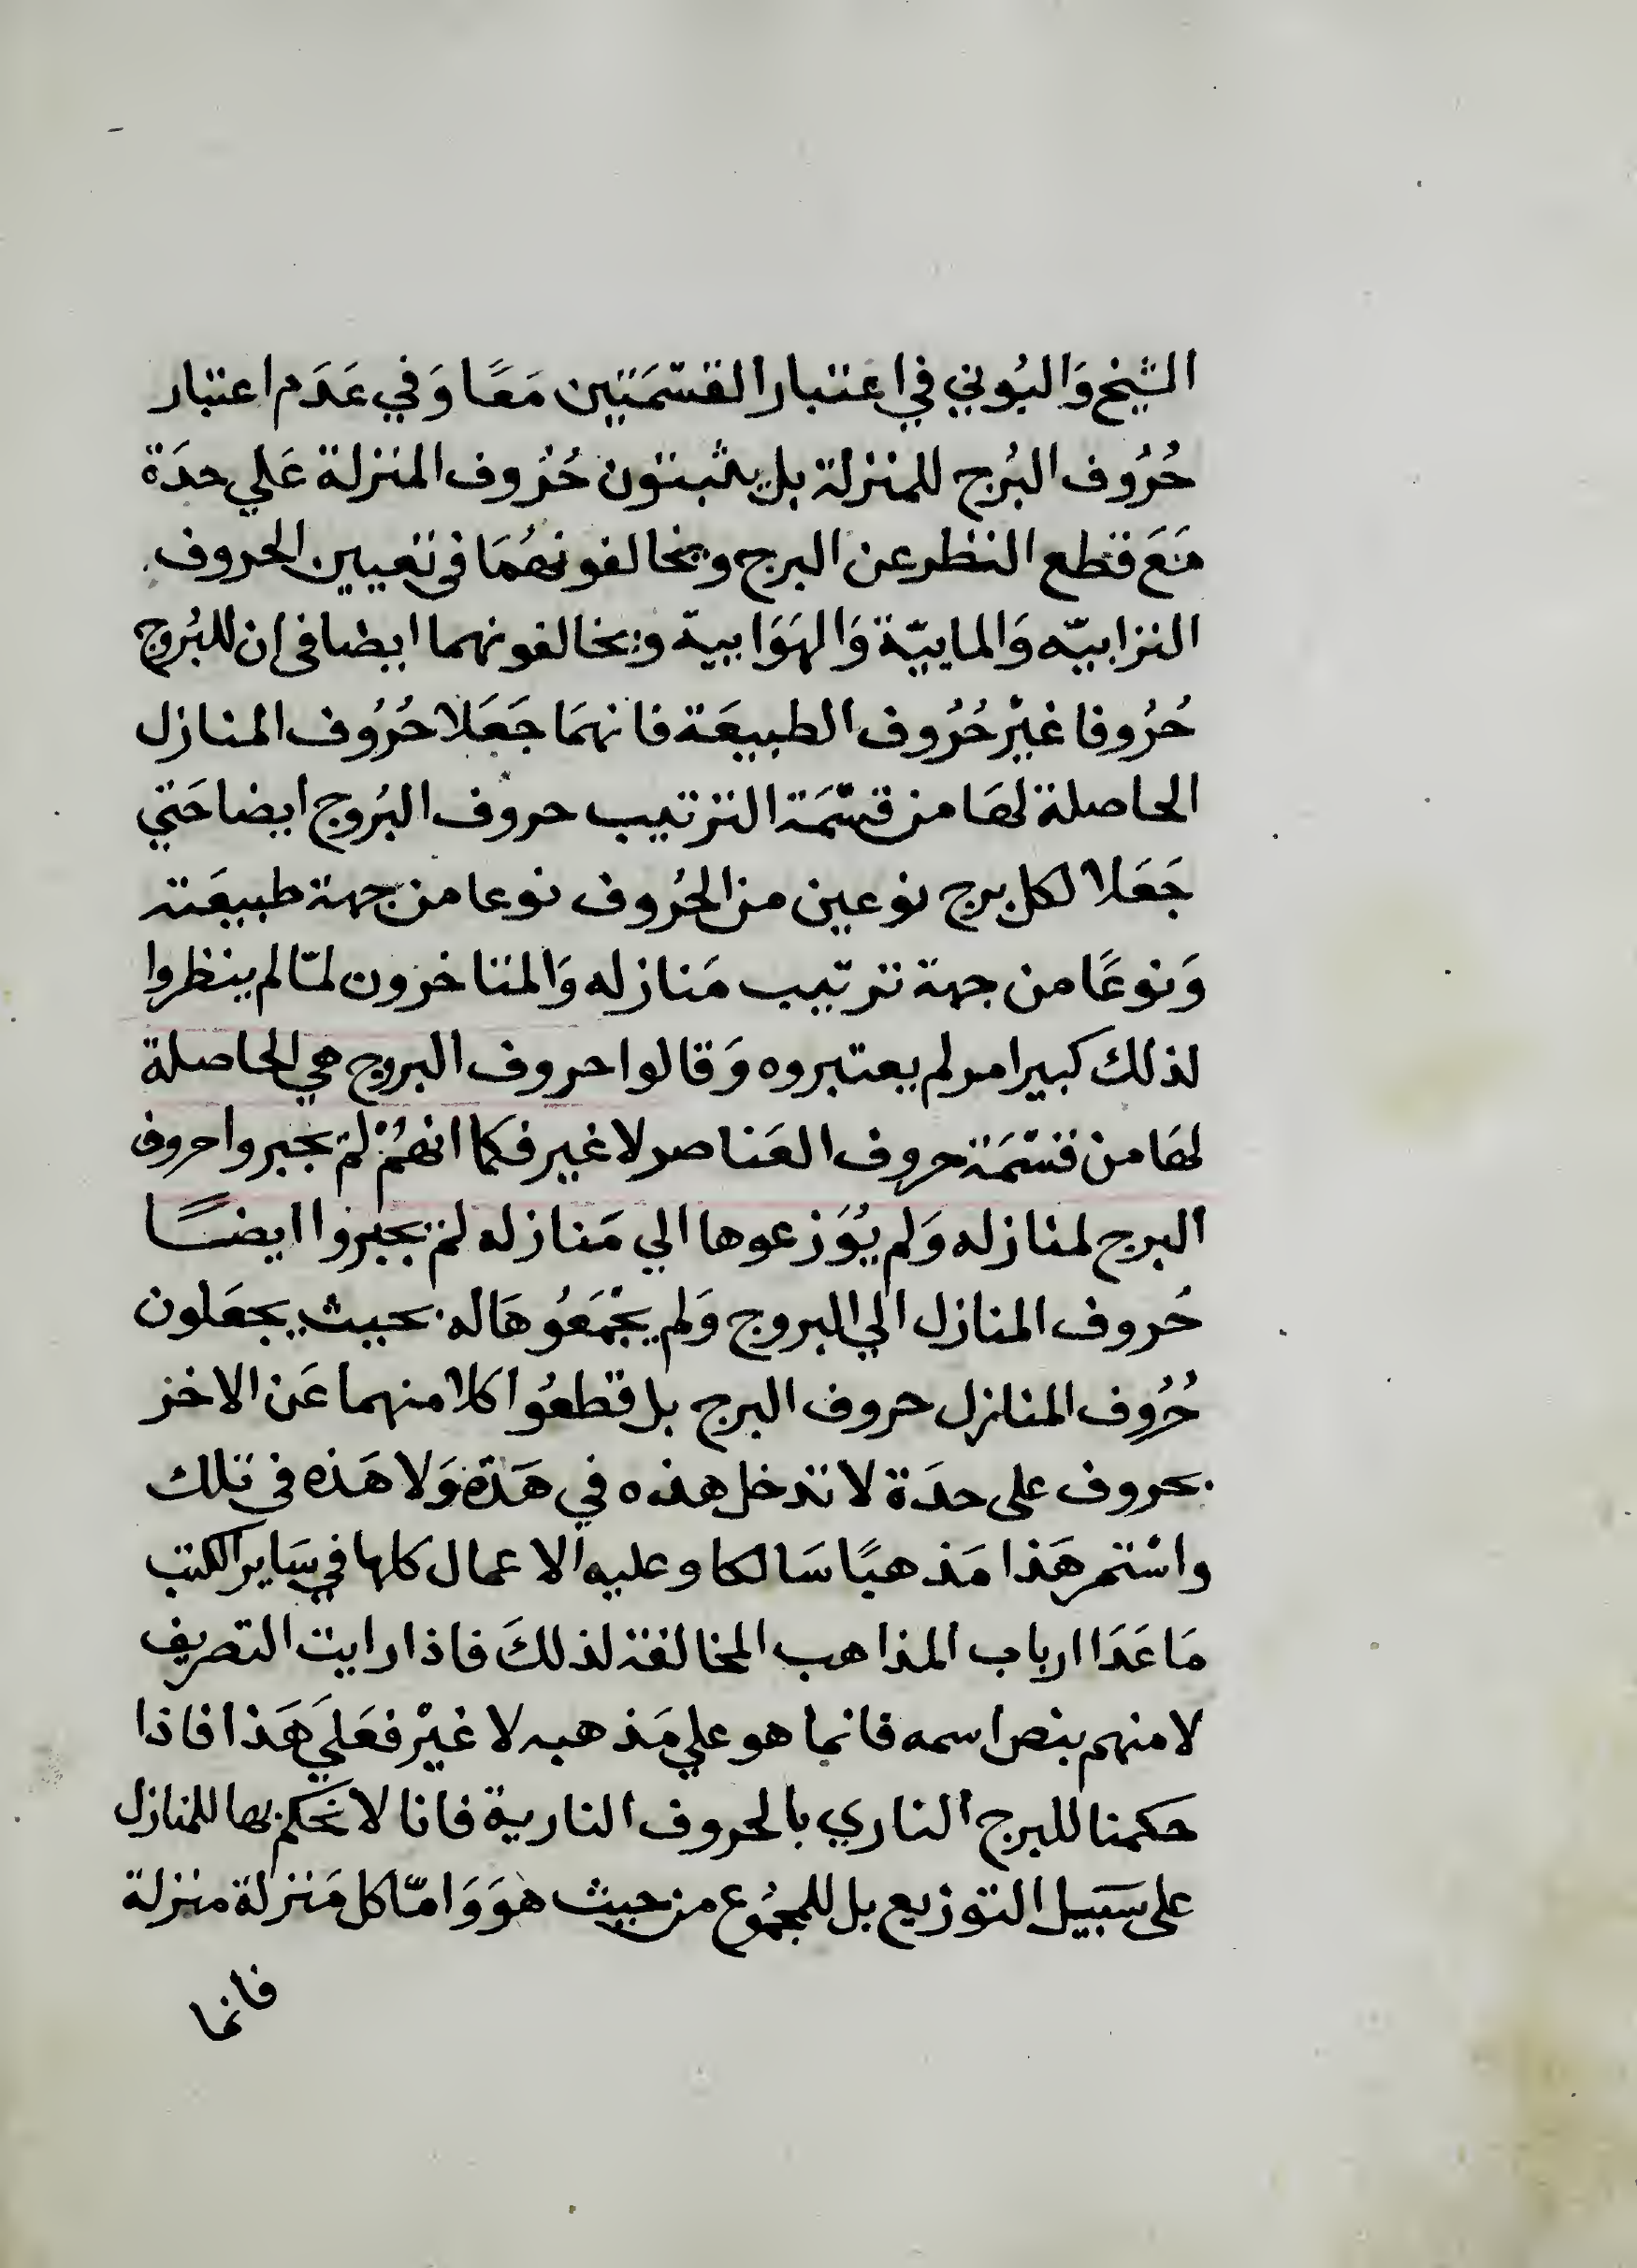 الشيخ وَالبُوني في اعَتبار القسّمَتين مَعًا وَفي عَدَم اعتبار
حُرُوف البُرج للمنزلة بل يثبتون حُرُوف المنزلة عَلي حدَة
مَعَ قطع النظر عن البرج ويخالفونهُمَا في تعيين الحروف
الترابيّه وَالماييّة وَالهَوَاييّة ويخالفونهما ايضا في ان للبُروج
حُرُوفا غيْر حُرُوف الطبيعَة فانهمَا جَعَلا حُرُوف المنازل
الحاصلة لهَا من قسّمَة الترتيب حروف البُروج ايضا حَتي
جَعَلا لكل برج نوعين من الحُروف نوعا من جهة طبيعَته
وَنوعًا من جهة ترتّيب مَنازله وَالمتاخرون لمّا لم ينظروا
لذلك كبير امر لم يعتبروه وَقالوا حروف البروج هي الحاصلة
لهَا من قسّمَة حروف العَناصر لا غير فكما انهُمْ لمْ يجبروا حروف
البرج لمنازله وَلم يُوَزعوها الي مَنازله لمْ يجبروا ايضًا
حُروف المنازل الي البروج وَلم يجْمَعُوهَا له بحيث يجعَلون
حُرُوف المنازل حروف البرج بل قطعُوا كلا منهما عَن الاخر
بحروف على حدَة لا تدخل هذه في هَذه وَلا هَذه في تلك
واسْتمر هَذا مَذهبًا سَالكا وعليه الاعمال كلها في سَاير الكتب
مَا عَدَا ارباب المذاهب المخالفة لذلكَ فاذا رايت التصريف
لا منهم بنص اسمه فانما هو علي مَذهبه لا غيْر فعَلي هَذا فاذا
حكمنا للبرج الناري بالحروف النارية فانا لا نحَكم بها للمنازل
على سَبيل التوزيع بل للمجمُوع من حيث هوَ وَامّا كل مَنزلة منزلة
فانما